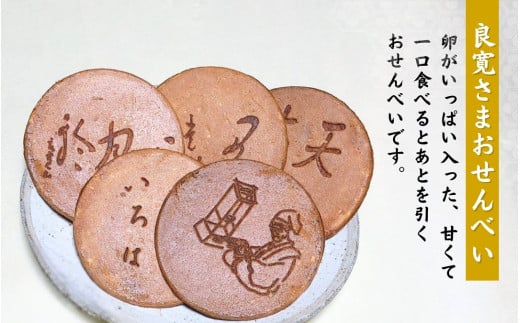 良寛さまおせんべい
卵がいっぱい入った、甘くて
一口食べるとあとを引く
おせんべいです。
天
いろは